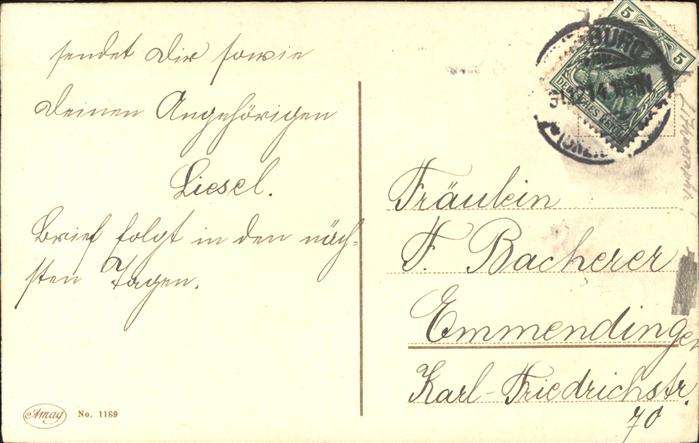 sendet Dir sowie
Deinen Angehörigen
Liesel.
Brief folgt in den näch-
sten Tagen.
Amag No. 1189
5 5
BURG
Fräulein
F. Bacherer
Emmendingen
Karl-Friedrichstr.
70